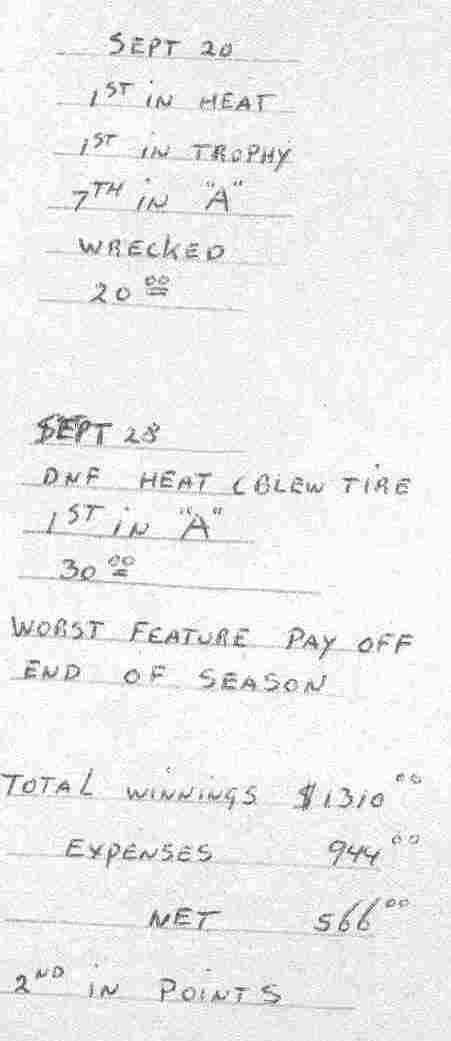 SEPT 20
1ST IN HEAT
1ST IN TROPHY
7TH IN "A"
WRECKED
20 00
SEPT 28
DNF HEAT (BLEW TIRE
1ST IN "A"
30 00
WORST FEATURE PAY OFF
END OF SEASON
TOTAL WINNINGS $1310 00
EXPENSES 944 00
NET 566 00
2ND IN POINTS